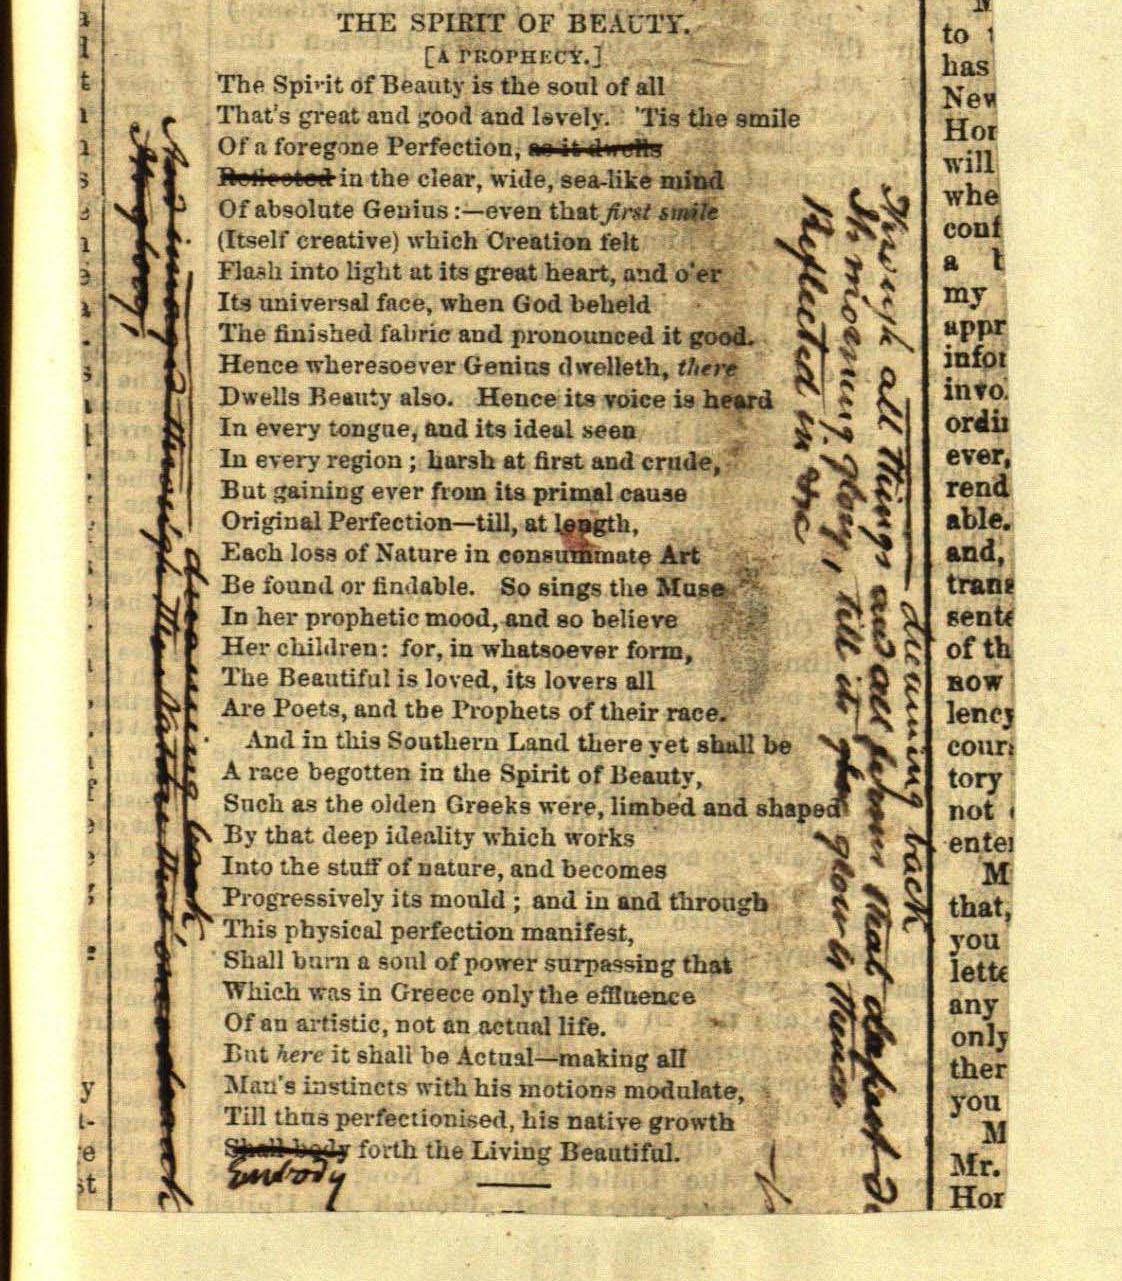 THE SPIRIT OF BEAUTY.
[A PROPHECY.]
The Spirit of Beauty is the soul of all
That's great and good and lovely. 'Tis the smile
Of a foregone Perfection, as it dwells
Reflected in the clear, wide, sea-like mind
Of absolute Genius :—even that first smile
(Itself creative) which Creation felt
Flash into light at its great heart, and o'er
Its universal face, when God beheld
The finished fabric and pronounced it good.
Hence wheresoever Genius dwelleth, there
Dwells Beauty also. Hence its voice is heard
In every tongue, and its ideal seen
In every region ; harsh at first and crude,
But gaining ever from its primal cause
Original Perfection—till, at length,
Each loss of Nature in consummate Art
Be found or findable. So sings the Muse
In her prophetic mood, and so believe
Her children: for, in whatsoever form,
The Beautiful is loved, its lovers all
Are Poets, and the Prophets of their race.
And in this Southern Land there yet shall be
A race begotten in the Spirit of Beauty,
Such as the olden Greeks were, limbed and shaped
By that deep ideality which works
Into the stuff of nature, and becomes
Progressively its mould ; and in and through
This physical perfection manifest,
Shall burn a soul of power surpassing that
Which was in Greece only the effluence
Of an artistic, not an actual life.
But here it shall be Actual—making all
Man's instincts with his motions modulate,
Till thus perfectionised, his native growth
Shall body forth the Living Beautiful.
Embody
dawning back
Through all things and all from that
Its morning glory, till it glow'th thence
Reflected in
And through
back
to
has
New
Hor
will
whe
conf
a
my
appr
infor
invo
ordin
ever,
rend
able.
and,
trans
sente
of th
now
lency
cour
tory
not
enter
M
that,
you
lette
any
only
ther
you
M
Mr.
Hor